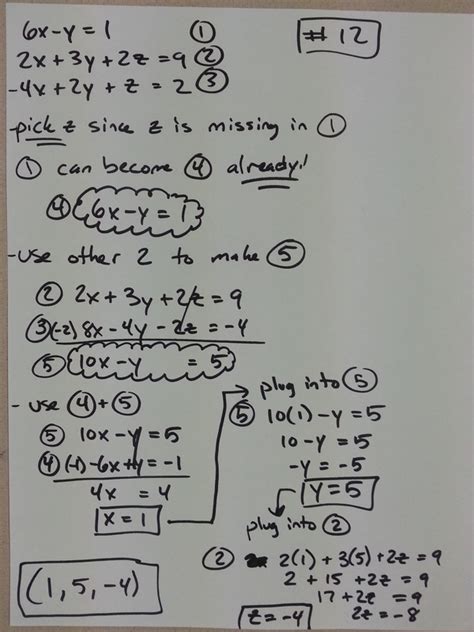 6x-y=1 ①
# 12
2x+3y+2z=9 ②
-4x+2y+z=2 ③
-pick z since z is missing in ①
① can become ④ already!
④ 6x-y=1
-use other 2 to make ⑤
② 2x+3y+2z=9
③(-2) 8x-4y-2z=-4
⑤ 10x-y =5
- use ④+⑤
⑤ 10x-y=5
④(-1) -6x+y=-1
4x =4
x=1
plug into ⑤
⑤ 10(1)-y=5
10-y=5
-y=-5
y=5
plug into ②
② 2(1)+3(5)+2z=9
2+15+2z=9
17+2z=9
2z=-8
z=-4
(1,5,-4)